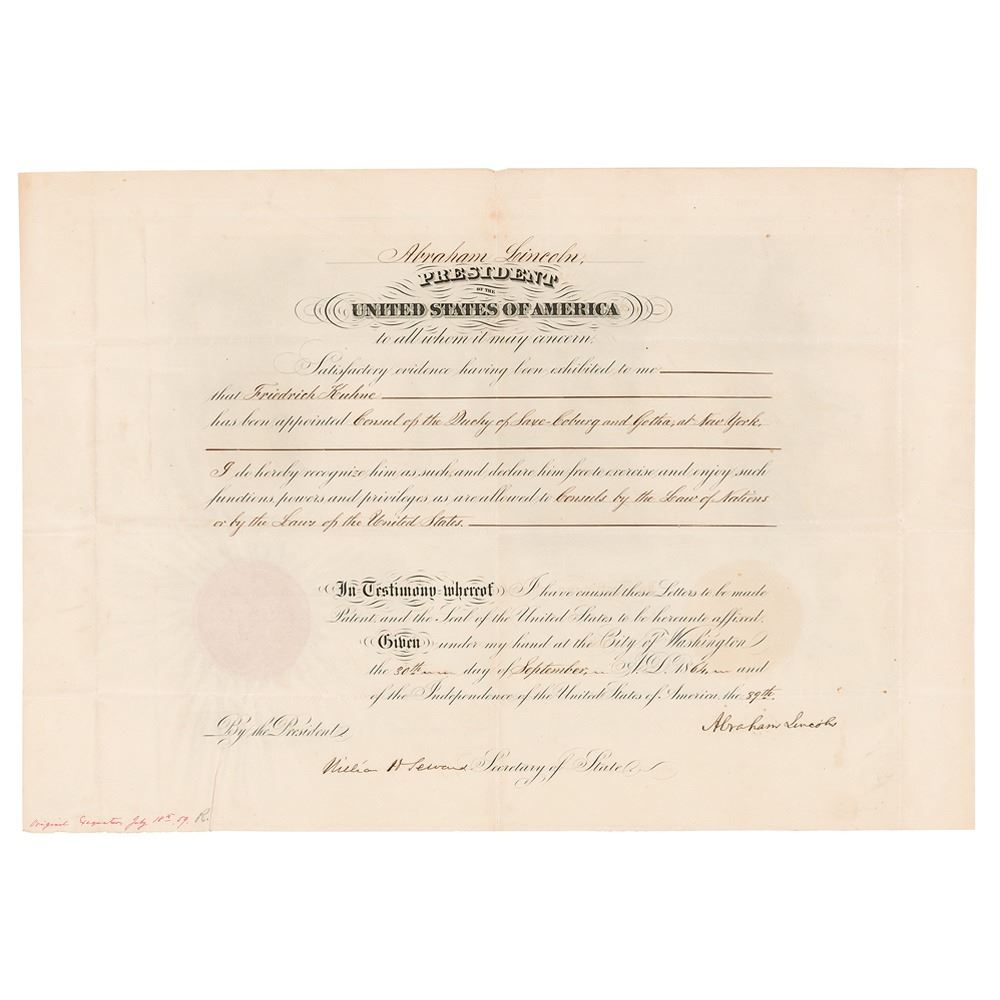 Abraham Lincoln,
PRESIDENT
OF THE
UNITED STATES OF AMERICA
to all whom it may concern:
Satisfactory evidence having been exhibited to me
that Friedrich Kuhne
has been appointed Consul of the Duchy of Saxe-Coburg and Gotha, at New York,
I do hereby recognize him as such, and declare him free to exercise and enjoy such
functions, powers and privileges as are allowed to Consuls by the Law of Nations
or by the Laws of the United States.
In Testimony whereof I have caused these Letters to be made
Patent, and the Seal of the United States to be hereunto affixed.
Given under my hand at the City of Washington
the 30th day of September, A.D. 1864, and
of the Independence of the United States of America, the 89th.
Abraham Lincoln
By the President
William H Seward Secretary of State
Original Exequatur July 18th 59. R.